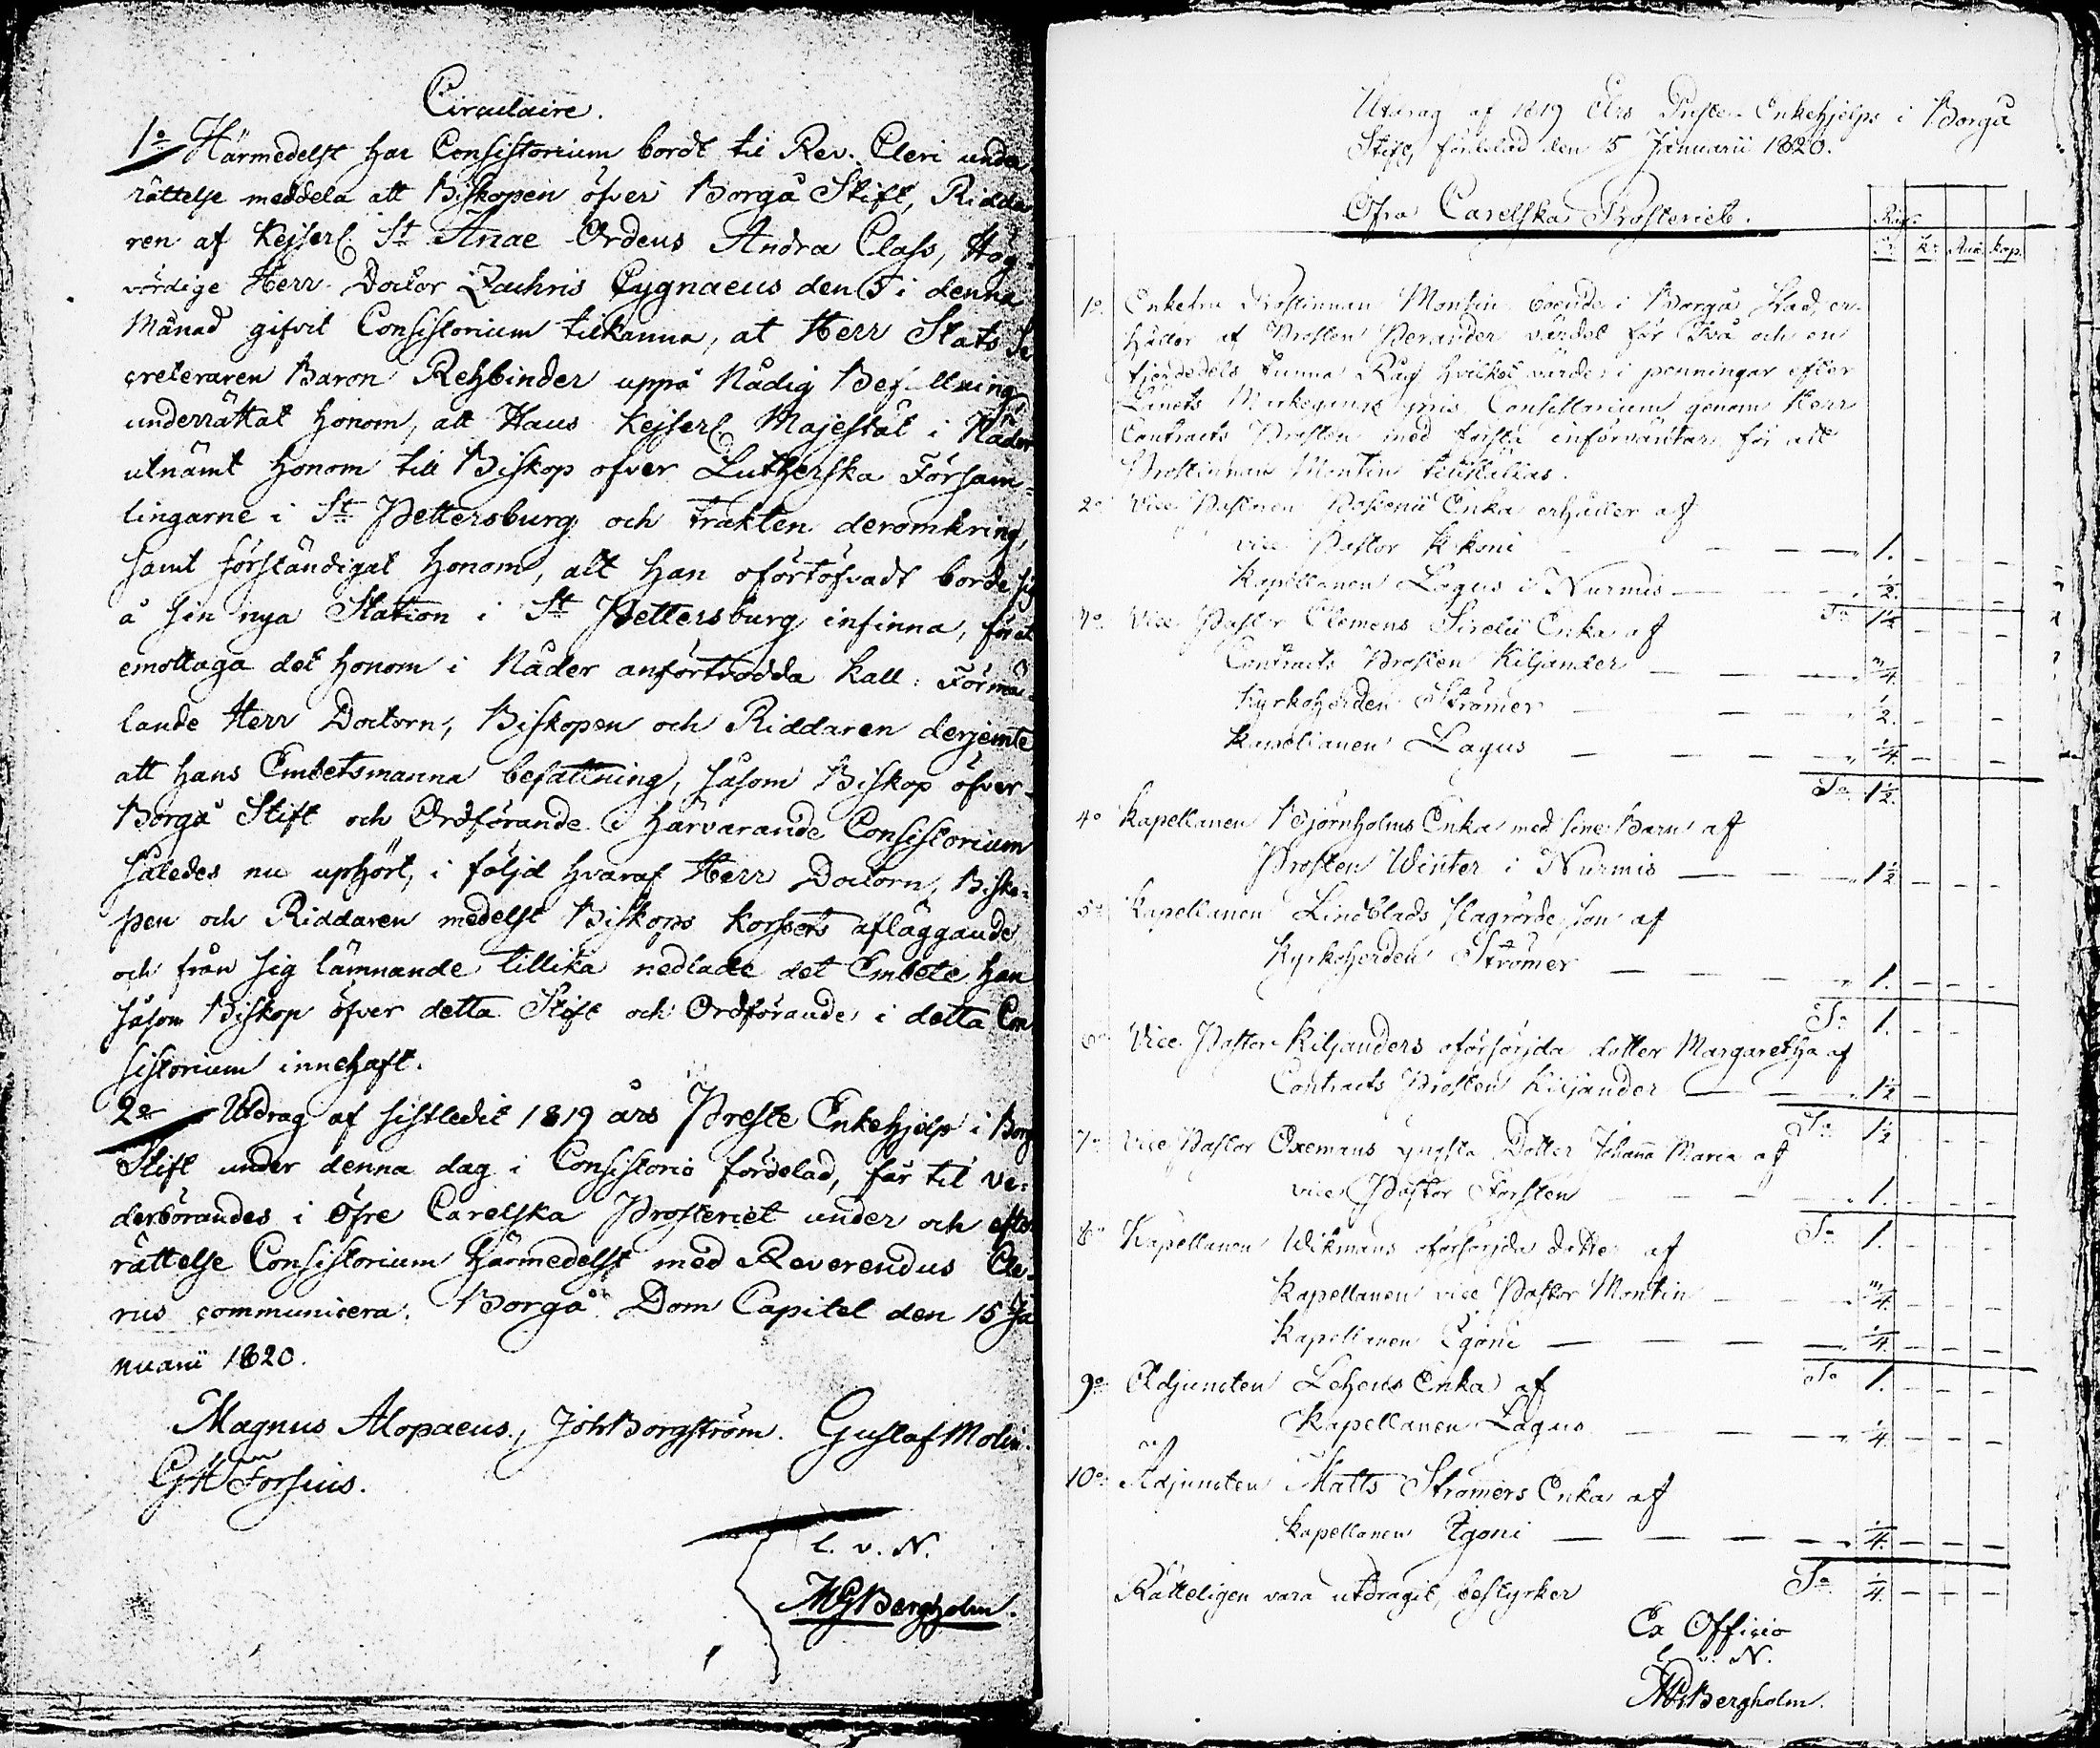 Circulaire.
1o Härmedelst har Consistorium bordt til Rev. Cleri unde
rättelse meddela att Biskopen öfver Borgå Stift, Ridda
ren af Kejserl St Anae Ordens Andra Class, Hög
vördige Herr Doctor Zachris Cygnaeus den 5 i denna
Månad gifvit Consistorium tilkänna, at Herr Stats Se
creteraren Baron Rehbinder uppå Nådig Befallning
underrättat honom, att Hans Kejserl Majestät i Nåder
utnämt honom till Biskop öfver Lutherska Försam-
lingarne i St Pettersburg och trakten deromkring,
samt förständigat honom, att han oförtöfvadt borde sig
å sin nya Station i St Pettersburg infinna, för at
emottaga det honom i Nåder anförtrodda kall: Förmä-
lande Herr Doctorn, Biskopen och Riddaren derjemte
att hans Embetsmanna befattning, såsom Biskop öfver
Borgå Stift och Ordförande i härvarande Consistorium
således nu uphört, i följd hvaraf Herr Doctorn, Bisko-
pen och Riddaren medelst Biskops korssets afläggande
och från sig lämnande tillika nedlade det Embete han
såsom Biskop öfver detta Stift och Ordförande i detta Con
sistorium innehaft.
2o Utdrag af sistledit 1819 års Preste Enkehjelp i Borg
Stift under denna dag i Consistorio fördelad, får til ve-
derbörandes i Öfre Carelska Prosteriet under och efter
rättelse Consistorium härmedelst med Reverendus Cle-
rus communicera. Borgå Dom Capitel den 15 Ja
nuarii 1820.
Magnus Alopaeus., Joh Borgström. Gustaf Molin.
GH Forsius.
l. v. N.
MGBergholm.
Utdrag af 1819 Års Preste-Enkehjelps i Borgå
Stift, fördelad den 5 Januarii 1820.
Öfra Carelska Prosteriet.
Råg.
Tr. Kr. Kop.
1o Enkefru Prostinnan Montin boende i Borgå Stad, er-
håller af Prosten Perander värdet för Två och en
fjerdedels tunna Råg hvilket värde i penningar efter
Länets Markegångs pris Consistorium genom Herr
Contracts Prosten med första införväntar, för att
Prostinnan Montin tillställas.
2o Vice Pastoren Enka erhåller af
vice Pastor — — — 1. — — —
Kapellanen Lagus i Nurmis — — — 1/2. — — —
Sa 1 1/2 — — —
3o Vice Pastor Clemens Sirelii Enka af
Contracts Prosten Kiljander — — — 3/4. — — —
Kyrkoherden Strömer — — — 1/2. — — —
Kapellanen Lagus — — — 1/4. — — —
Sa 1 1/2.
4o Kapellanen Björnholms Enka med sine Barn af
Prosten Winter i Nurmis — — — 1 1/2 — — —
5o Kapellanen Lindblads slagrörde son af
Kyrkoherden Strömer — — — 1. — — —
Sa 1. — —
6o Vice Pastor Kiljanders oförsörjda dotter Margaretha af
Contracts Prosten Kiljander — — 1 1/2 —
Sa 1 1/2 — —
7o Vice Pastor Oxemans yngsta Dotter Johana Maria af
vice Pastor Forsten — — — 1. — — —
Sa 1. — — —
8o Kapellanen Wikmans oförsörjda dotter af
Kapellanen vice Pastor Montin — — 3/4. — — —
Kapellanen Egoni — — — 1/4. — — —
Sa 1. — — —
9o Adjuncten Enka af
Kapellanen Lagus — — — 1/4. — — —
10o Adjuncten Matts Strömers Enka af
Kapellanen Egoni — — — 1/4. — — —
Sa 1/4. — — —
Rätteligen vara utdragit, bestyrker
Ex Officio
l. v. N.
MGBergholm.